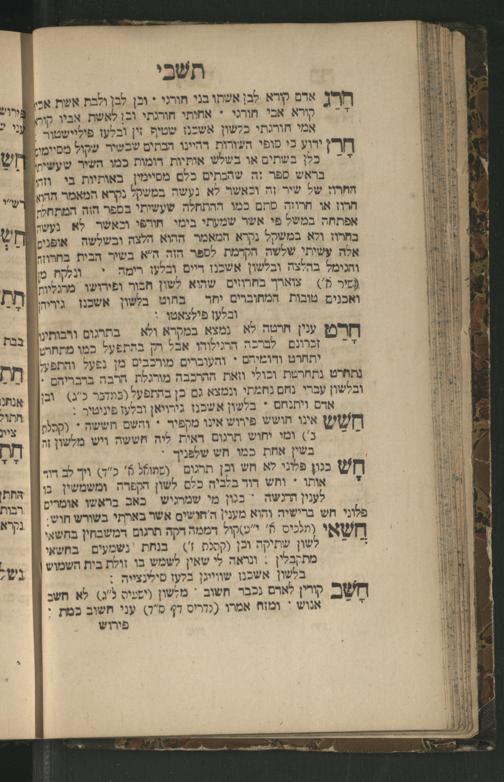 תשבי
חָרַג אדם קורא לבן אשתו בני חורגי · וכן לבן ולבת אשת אביו
קורא אבי חורגי · אחותי חורגתי וכן לאשת אביו קורא
אמי חורגתי בלשון אשכנז שטוף זין ובלעז פיליישטור
חָרַז ידוע כי סופי השורות דהיינו הבתים שבשיר שקול מסיימים
כלן בשתים או בשלש אותיות דומות כמו השיר שעשיתי
בראש ספר זה שהבתים כלם מסיימין באותיות בי וזהו
החרוז של שיר זה וכאשר לא נעשה במשקל נקרא המאמר ההוא
חרוז או חרוזה סתם כמו ההתחלה שעשיתי בספר הזה המתחלת
אפתחה במשל פי אשר שמעתי בימי חורפי וכאשר לא נעשה
בחרוז ולא במשקל נקרא המאמר ההוא הלצה ובשלשה אופנים
אלה עשיתי שלשה הקדמות לספר הזה הא׳ בשיר הבית בחרוזה
והגימל בהלצה ובלשון אשכנז ריים ובלעז רימה · ונלקח מן
(שיר א׳) צוארך בחרוזים שהוא לשון חבור ופירושו מרגליות
ואבנים טובות המחוברים יחד בחוט בלשון אשכנז
ובלעז פילצאטו :
חָרַט ענין חרטה לא נמצא במקרא ולא בתרגום ורבותינו
זכרונם לברכה הרגילוהו אבל רק בהתפעל כמו מתחרט
יתחרט ודומיהם · והעוברים מורכבים מן נפעל והתפעל
נתחרט נתחרטת וכולי וזאת ההרכבה מורגלת הרבה בדבריהם ·
ובלשון עברי נחם נחמתי ונמצא גם כן בהתפעל (במדבר כ״ג) ובן
אדם ויתנחם · בלשון אשכנז גירויאן ובלעז פינטיר :
חָשַׁש אינו חושש פירוש אינו מקפיד · והשם חששה · (קהלת
ב׳) ומי יחוש תרגום דאית ליה חששה ויש מלשון זה
בשין אחת כמו חש שלפניך ·
חָשׁ כגון פלוני לא חש וכן תרגום (שמואל א׳ כ״ד) ויך לב דוד
אותו · וחש דוד בלביה כלם לשון הקפדה ומשמשין בו
לענין הרגשה · כגון מי שמרגיש כאב בראשו אומרים
פלוני חש ברישיה והוא מענין החושים אשר בארתי בשורש חוש :
חֲשַׁאי (מלכים א׳ י״ט) קול דממה דקה תרגום דמשבחין בחשאי
לשון שתיקה וכן (קהלת ז׳) בנחת נשמעים בחשאי
מתקבלין · ונראה לי שאין לשמש בו זולת בית השמוש
בלשון אשכנז שווייגן בלעז סילינצייה :
חָשַׁב קורין לאדם נכבד חשוב · מלשון (ישעיה ל״ג) לא חשב
אנוש · ומזה אמרו (נדרים דף ס״ד) עני חשוב כמת :
פירוש